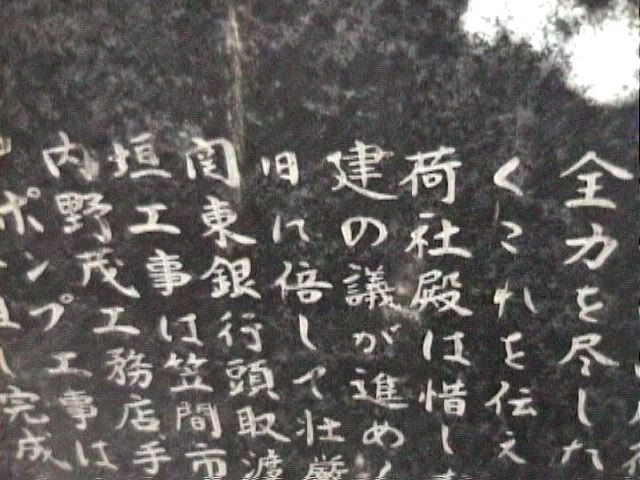 全力を尽した
くこれを伝え
荷社殿は惜し
建の議が進め
旧に倍して壮厳
関東銀行頭取渡
垣工事は笠間市
内野茂工務店手
ポンプ工事は
し完成